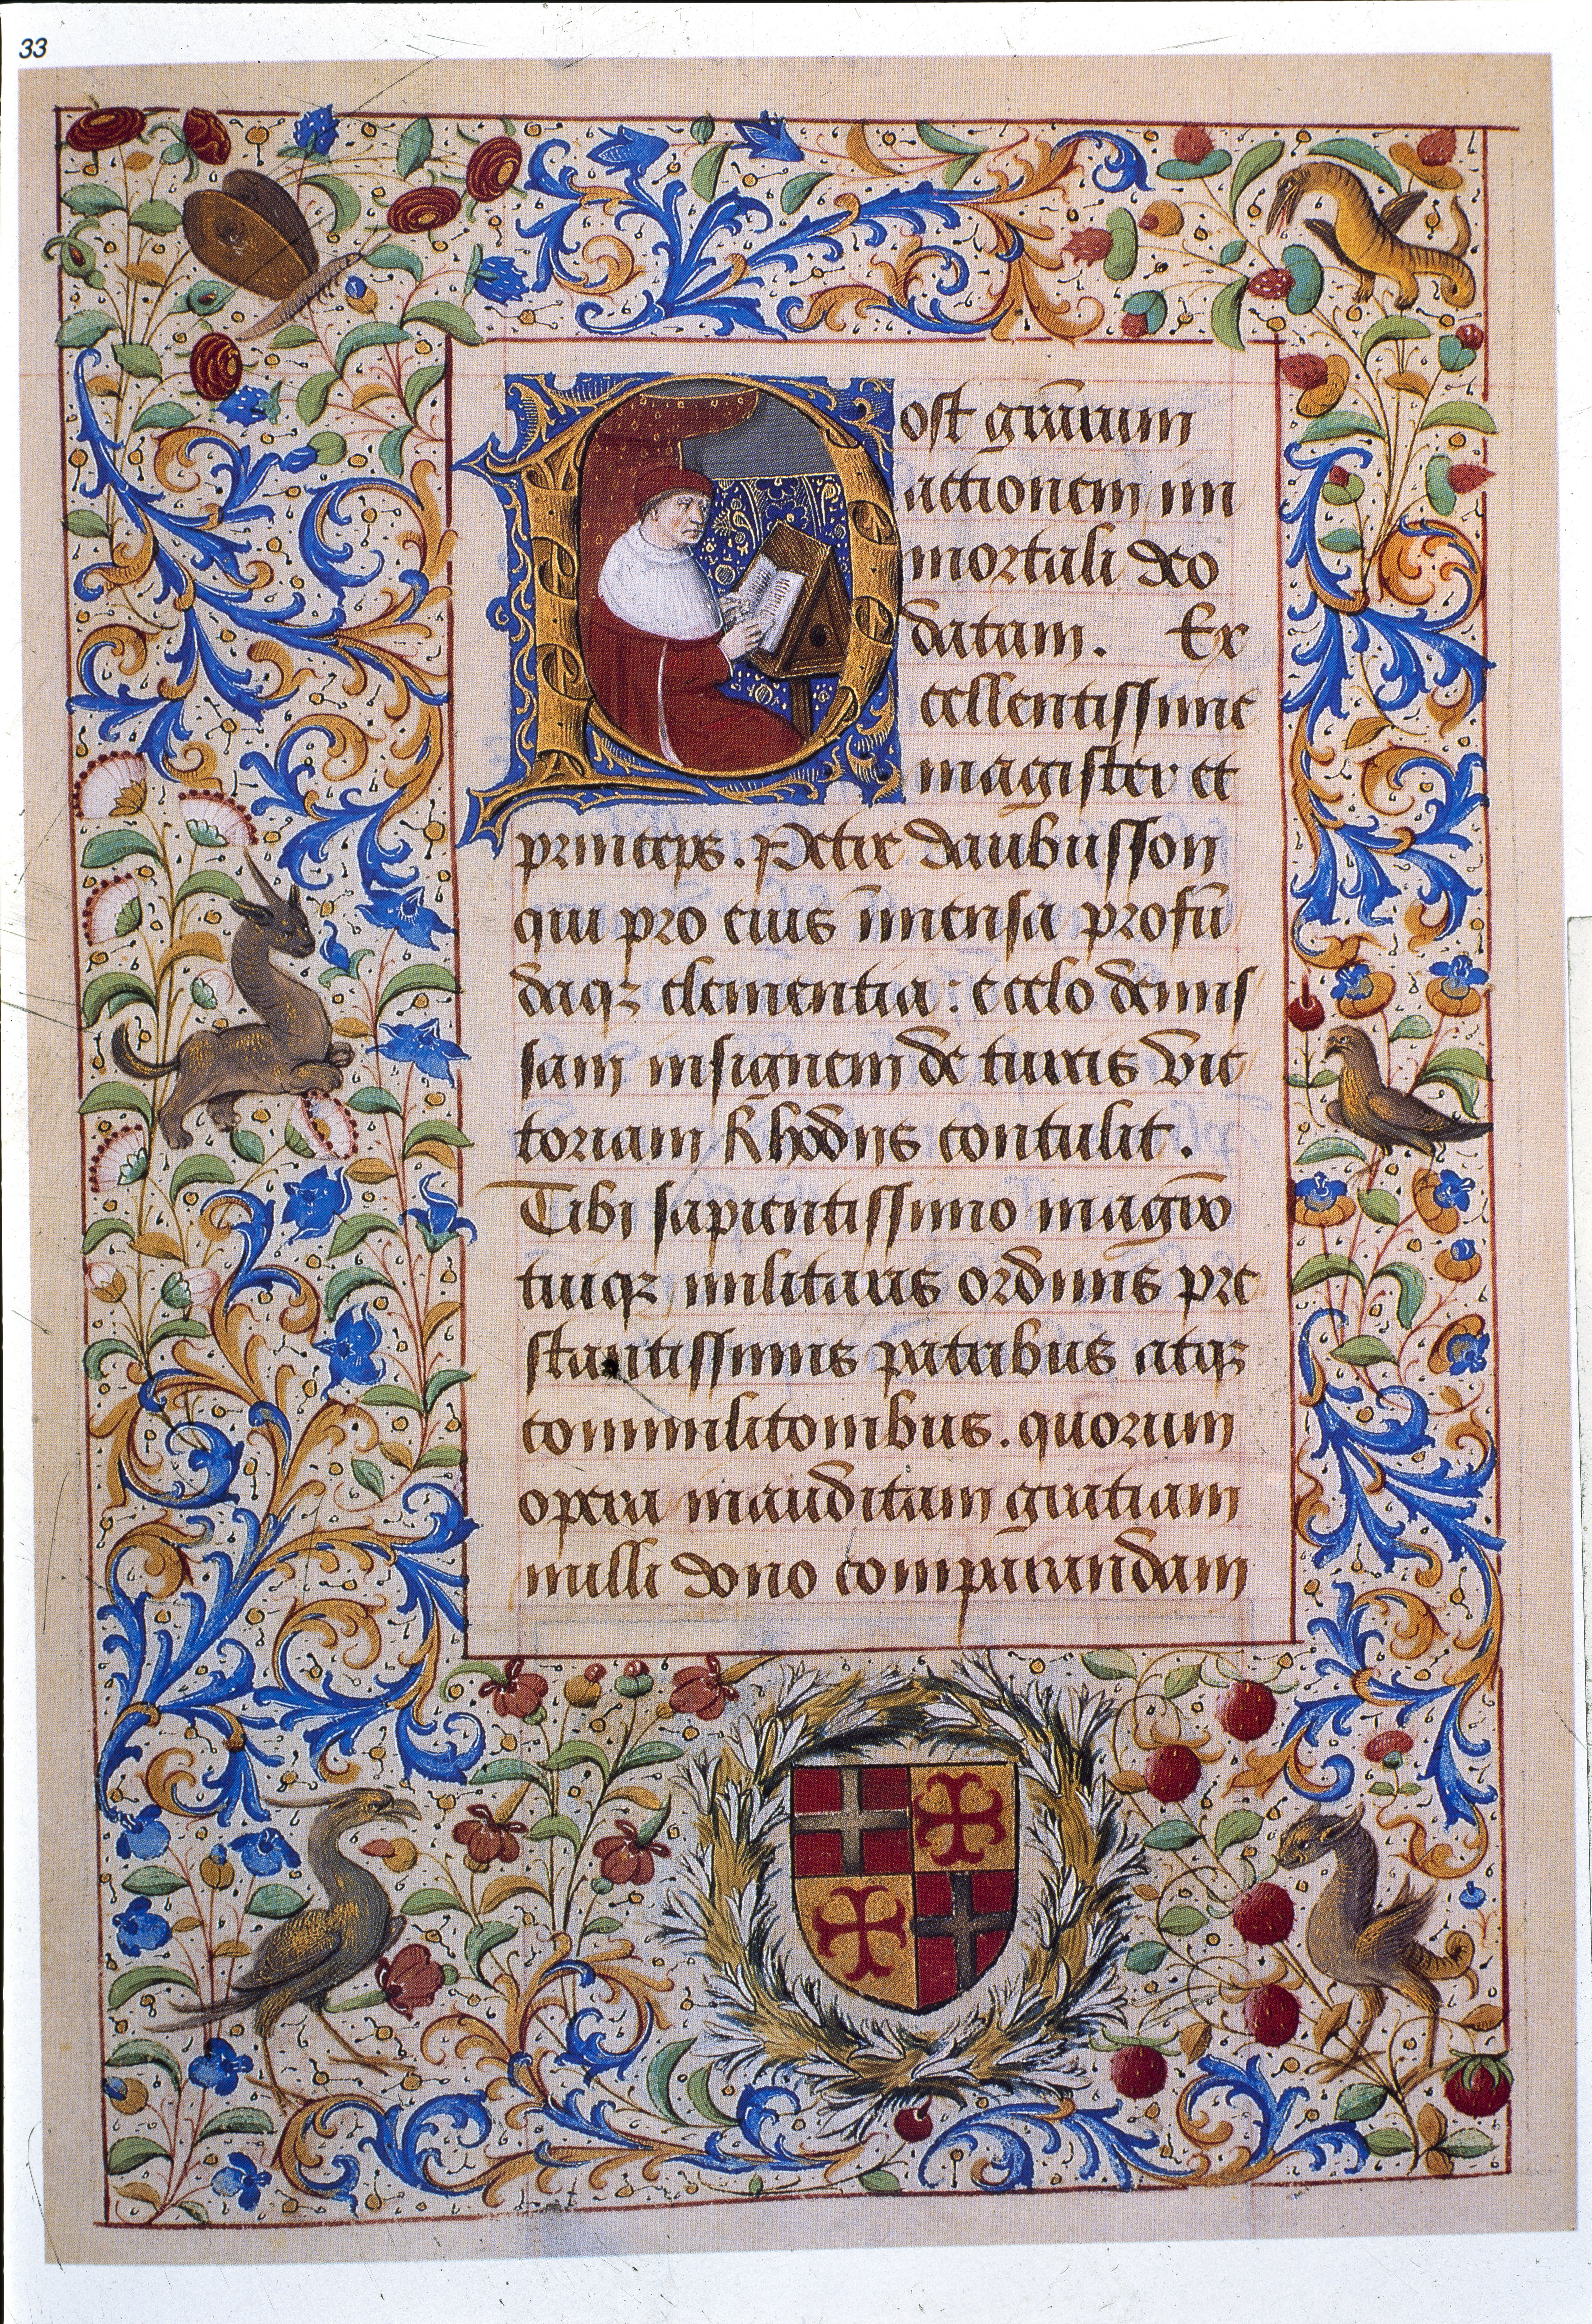 33
Post gr̄arum
actionem im
mortali deo
datam. Ex
cellentissime
magister et
princeps. Petre daubusson
qui pro eius īmensa profū
daqꝫ clementia: e celo demis
sam insignem de turcis vic
toriam Rhodijs contulit.
Tibi sapientissimo magr̄o
tuiqꝫ militaris ordinis pre
stantissimis patribus atqꝫ
commilitonibus. quorum
opera inauditam gratiam
nulli dono comparandam